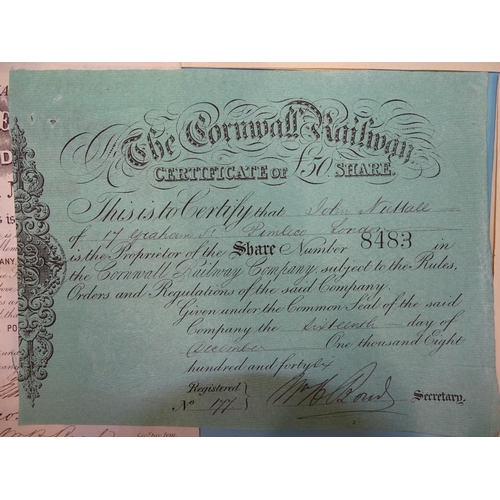 The Cornwall Railway.
CERTIFICATE OF £50 SHARE.
This is to Certify that John Nuttall
of 17 Graham St Pimlico London
is the Proprietor of the Share Number 8483 in
the Cornwall Railway Company, subject to the Rules,
Orders and Regulations of the said Company.
Given under the Common Seal of the said
Company the Sixteenth day of
December One thousand Eight
hundred and forty six
Registered
No 177
Secretary.